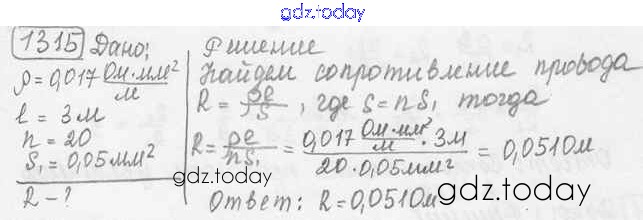 gdz.today
1315 Дано:
ρ=0,017 Ом·мм²/м
ℓ = 3м
n = 20
S₁=0,05мм²
R - ?
Решение
Найдем сопротивление провода
R = ρℓ/S, где S=nS₁ тогда
R = ρℓ/nS₁ = 0,017 Ом·мм²/м · 3м / 20·0,05мм² = 0,051Ом
gdz.today
Ответ: R=0,051Ом
gdz.today